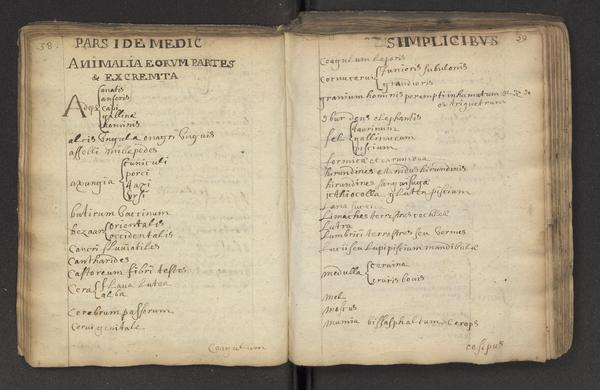 38.
PARS I DE MEDIC
ANIMALIA EORVM PARTES
& EXCREMTA
Adeps
anatis
anseris
capi
gallinæ
hominis
alcis Ungula onagri Unguis
aselli millepedes
axungia
cuniculi
porci
taxi
ursi
butirum vaccinum
Bezaar
orientalis
occidentalis
Cancri fluviatiles
Cantharides
Castoreum fibri testes
Cera
flava lutea
alba
Cerebrum passerum
Cervi genitale
Coagulum
SIMPLICIBVS
39
Coagulum leporis
Cornu cervi
junioris subulonis
grandioris
cranium hominis perempti inhumatum
os triquetrum
Ebur dens elephantis
fel
taurinum
gallinaceum
piscium
formicæ et earum ova
hirundines et nidus hirundinis
hirudines sanguisugæ
ichthiocolla gluten piscium
Lana succida
Limaches terrestres cochleæ
Lutra
Lumbrici terrestres seu vermes
Lucii seu lupi piscium mandibulæ
medulla
cervina
cruris bovis
mel
moscus
mumia bissasphaltum
oesipus